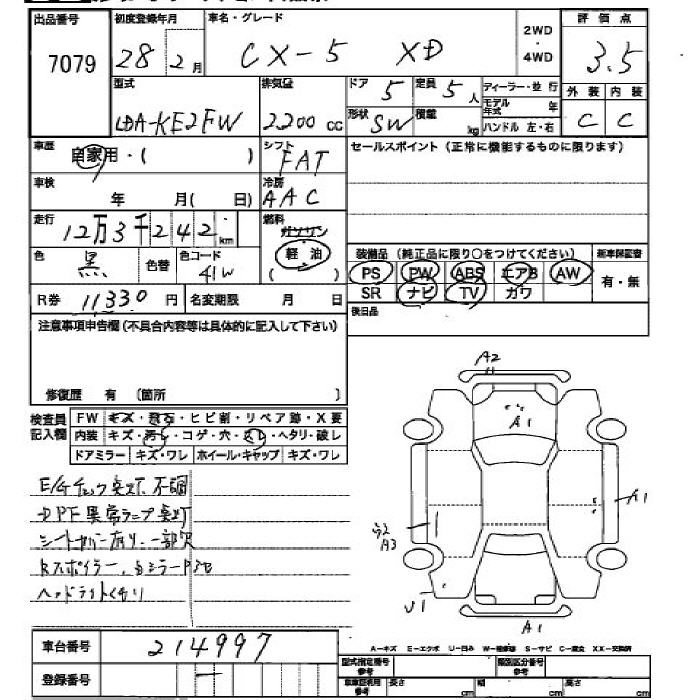 出品番号 初度登録年月 車名・グレード 2WD・4WD 評価点
7079 28 2月 CX-5 XD 3.5
型式 排気量 ドア 5 定員 5人 ディーラー・並行 外装 内装
LDA-KE2FW 2200cc 形状 SW 積載 kg モデル年式 年 ハンドル 左・右 C C
車歴 自家用・( ) シフト FAT セールスポイント(正常に機能するものに限ります)
車検 年 月(日) 冷房 AAC
走行 12万3千242km 燃料 ガソリン 軽油 ( )
色 黒 色替 色コード 41W
装備品(純正品に限り○をつけてください) 新車保証書
PS PW ABS エアB AW 有・無
SR ナビ TV ガワ
R券 11330円 名変期限 月 日 後日品
注意事項申告欄(不具合内容等は具体的に記入して下さい)
修復歴 有 〔箇所 〕
検査員記入欄 FW キズ・飛石・ヒビ割・リペア跡・X要
内装 キズ・汚れ・コゲ・穴・スレ・ヘタリ・破レ
ドアミラー キズ・ワレ ホイール・キャップ キズ・ワレ
E/Gチェック点灯、不調
DPF異常ランプ点灯
シートカバー有り、一部欠
Rスポイラー、
ヘッドライトくもり
A2
A1
A1
A3
U1
A1
車台番号 214997
登録番号 ー
A-キズ E-エクボ U-凹み W-補修跡 S-サビ C-腐食 XX-交換済
型式指定番号 参考 類別区分番号 参考
車庫証明用 参考 長さ cm 幅 cm 高さ cm